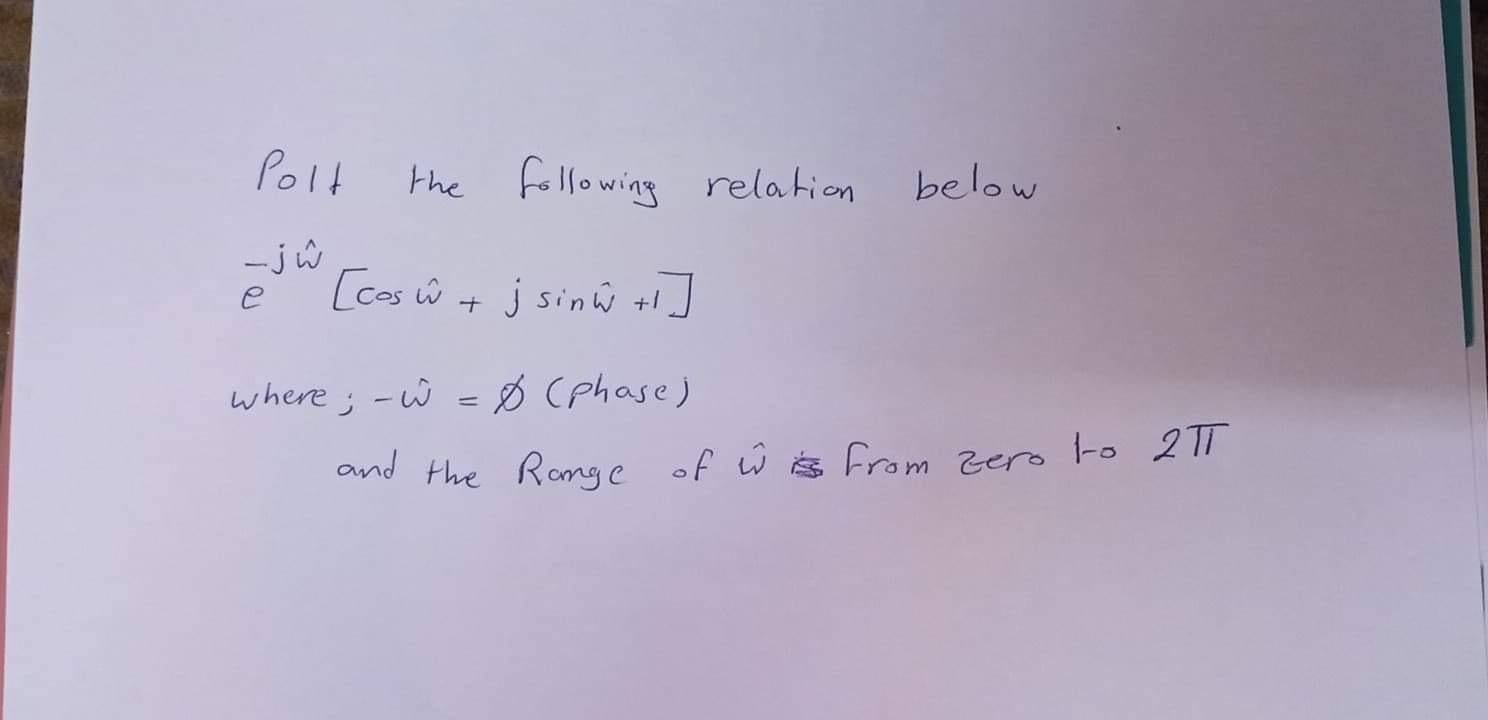 Polt the following relation below
e^{-jŵ} [cos ŵ + j sin ŵ +1]
where; -ŵ = ∅ (Phase)
and the Range of ŵ from zero to 2π